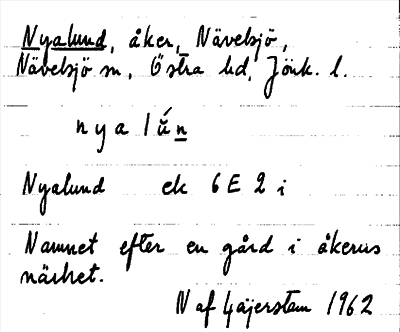 Nyalund, åker, Nävelsjö,
Nävelsjö sn, Östra hd, Jönk. l.
nyalún
Nyalund ek 6E 2 i
Namnet efter en gård i åkerns
närhet.
N af Gäjerstam 1962